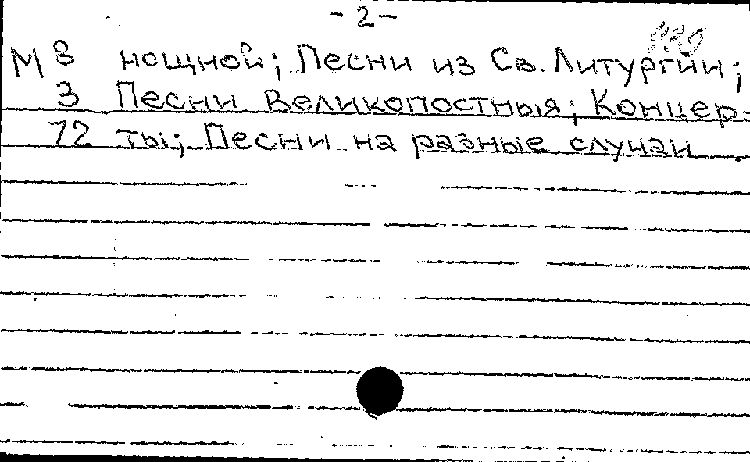 - 2 -
М 8 нощной; Песни из Св. Литургии;
3 Песни Великопостныя; Концер-
12 ты; Песни на разные случаи